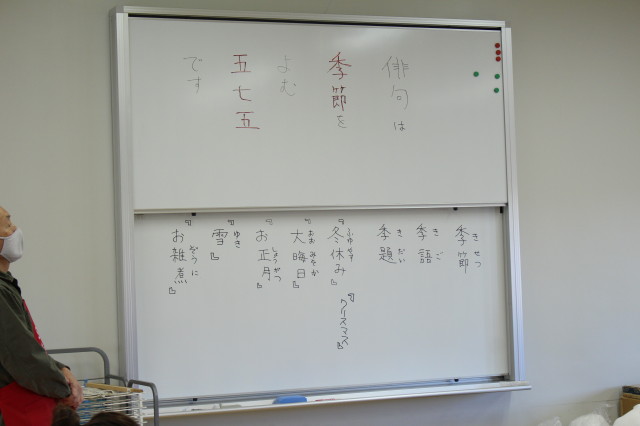 俳句は
季節を
よむ
五七五
です
季節
きせつ
季語
きご
季題
きだい
『冬休み』
ふゆやす
『クリスマス』
『大晦日』
おおみそか
『お正月』
しょうがつ
『雪』
ゆき
『お雑煮』
ぞうに